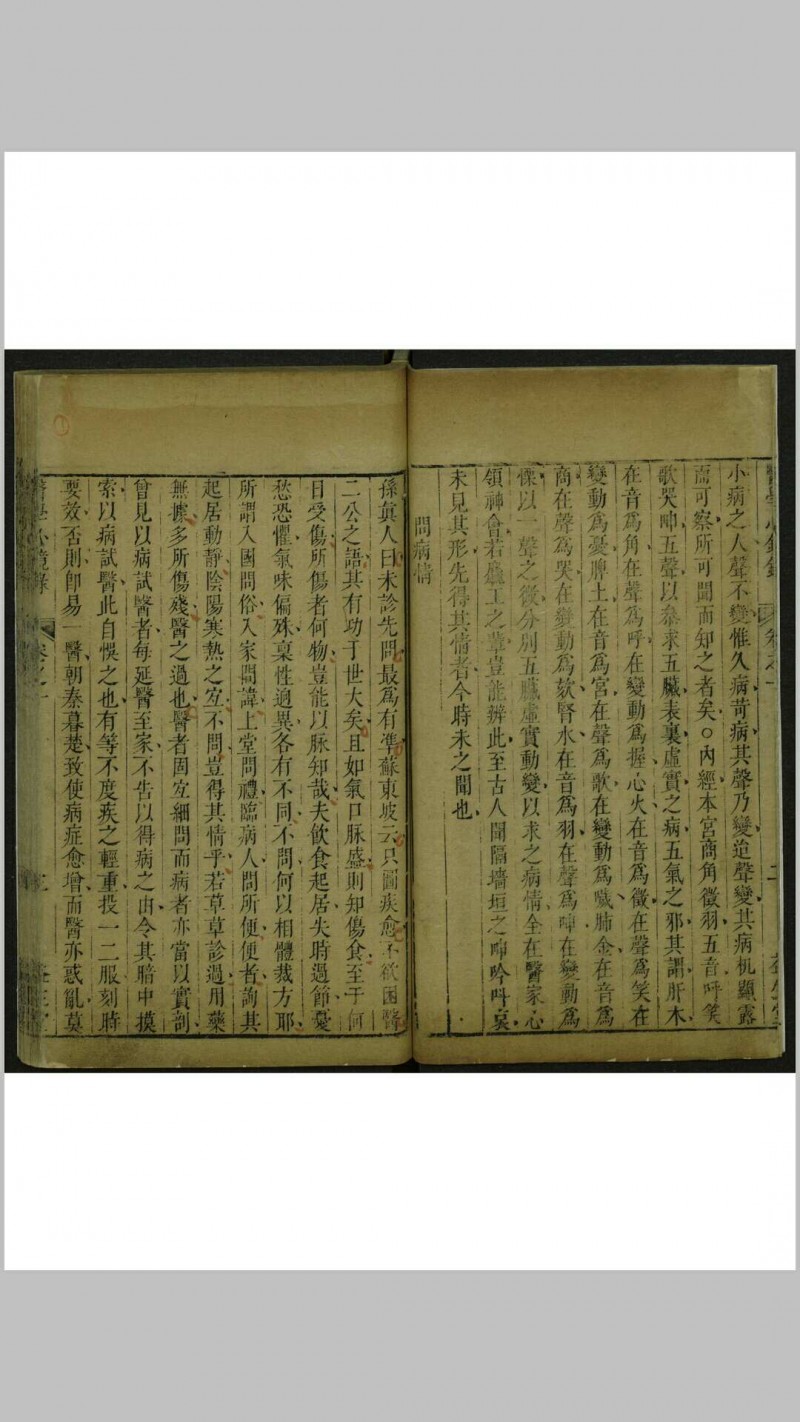 小病之人聲不變惟久病苛病其聲乃變迨聲變其病机顯露
而可察所可聞而知之者矣○內經本宮商角徵羽五音呼笑
歌哭呻五聲以叅求五臟表裏虛實之病五氣之邪其謂肝木
在音爲角在聲爲呼在變動爲握心火在音爲徵在聲爲笑在
變動爲憂脾土在音爲宮在聲爲歌在變動爲噦肺金在音爲
商在聲爲哭在變動爲欬腎水在音爲羽在聲爲呻在變動爲
慄以一聲之微分別五臟虛實動變以求之病情全在醫家心
領神會若麄工之輩豈能辨此至古人聞隔墻垣之呻吟呌哀
未見其形先得其情者今時未之聞也
問病情
孫眞人曰未診先問最爲有準蘇東坡云只圖疾愈不欲困醫
二公之語其有功于世大矣且如氣口脉盛則知傷食至于何
日受傷所傷者何物豈能以脉知哉夫飲食起居失時過節憂
愁恐懼氣味偏殊稟性逈異各有不同不問何以相體裁方耶
所謂入國問俗入家問諱上堂問禮臨病人問所便便者詢其
起居動靜陰陽寒熱之宜不問豈得其情乎若草草診過用藥
無據多所傷殘醫之過也醫者固宜細問而病者亦當以實剖
曾見以病試醫者每延醫至家不告以得病之由令其暗中摸
索以病試醫此自悞之也有等不度疾之輕重投一二服刻時
要效否則卽易一醫朝秦暮楚致使病症愈增而醫亦惑亂莫
醫學心鏡錄
卷之一